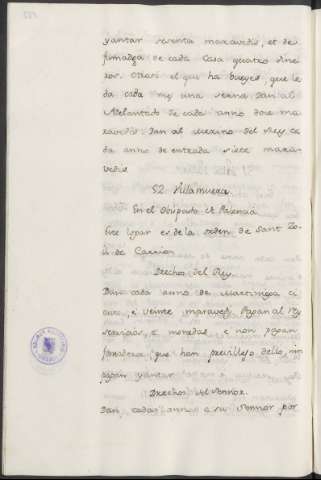 yantar sesenta maravedis, et de
fumadga de cada Casa quatro dine
ros. Otrosi el que ha bueyes, que le
da cada mes una serna dan al
Adelantado de cada anno doce ma
ravedis dan al merino del Rey ca
da anno de entrada siete mara
vedis
52 Villamuera.
En el Obispado de Palencia
Este logar es de la orden de Sant Zo
il de Carrion
Drechos del Rey.
Dan cada anno de Martiniega ci
ento, e veinte maraveds. Pagan al Rey
servicios, e monedas, e non pagan
fonsadera, que han previllejo dello, nin
pagan yantar
Drechos del Sennor.
Dan cada anno a su Sennor por